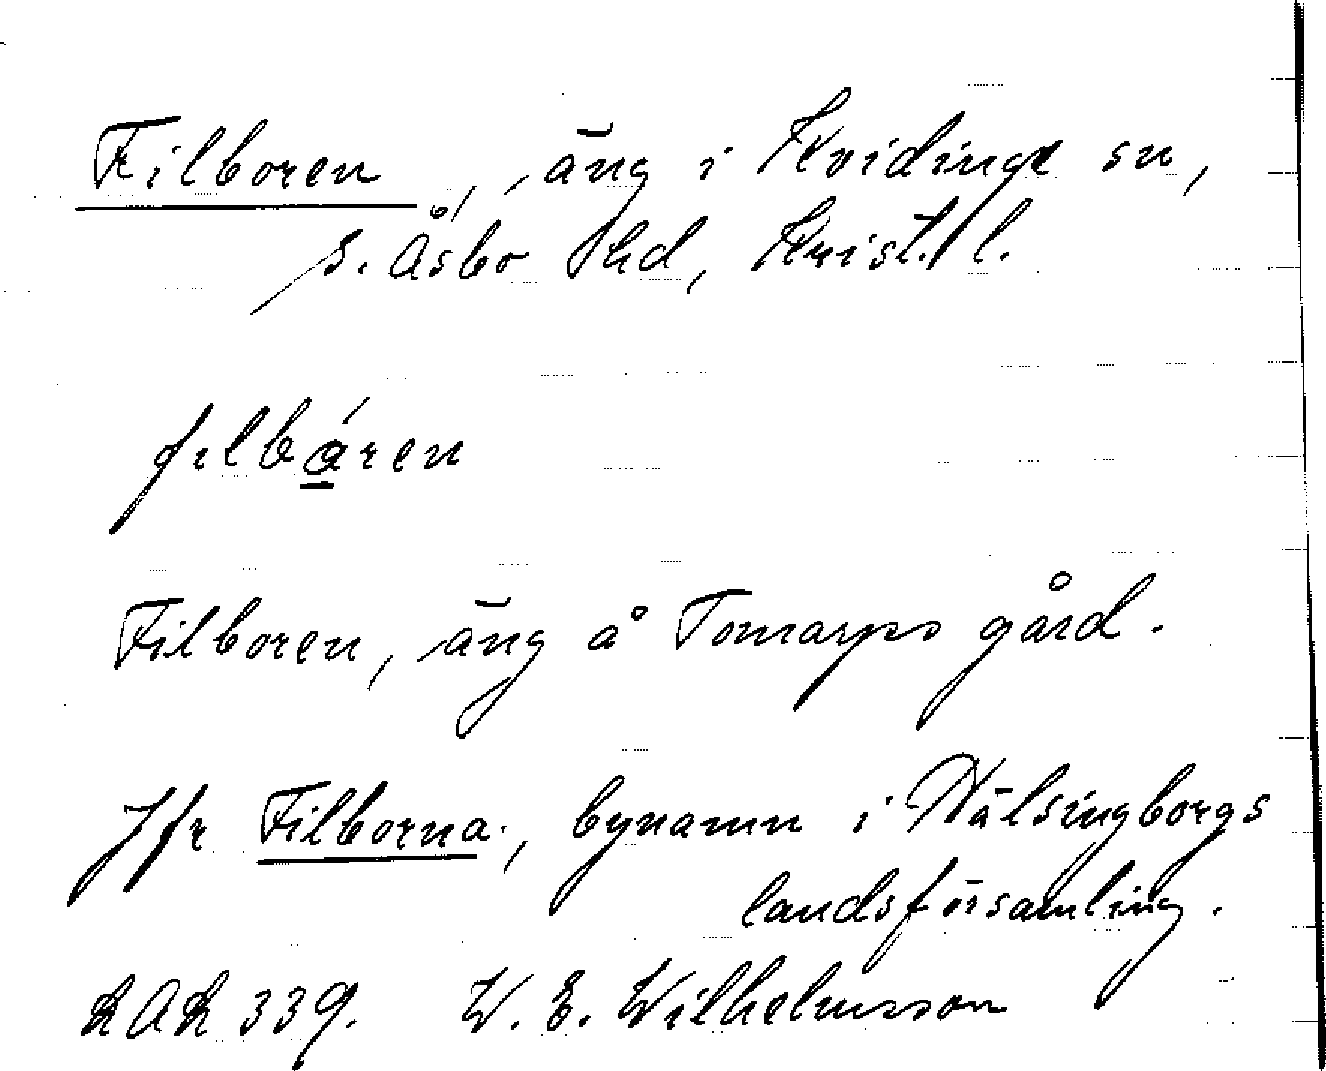 Filboren, äng i Kvidinge sn,
S. Åsbo hd, Krist. l.
filbǻren
Filboren, äng å Tomarps gård.
Jfr Filborna, bynamn i Hälsingborgs
landsförsamling.
LAL 339. W. E. Wilhelmsson